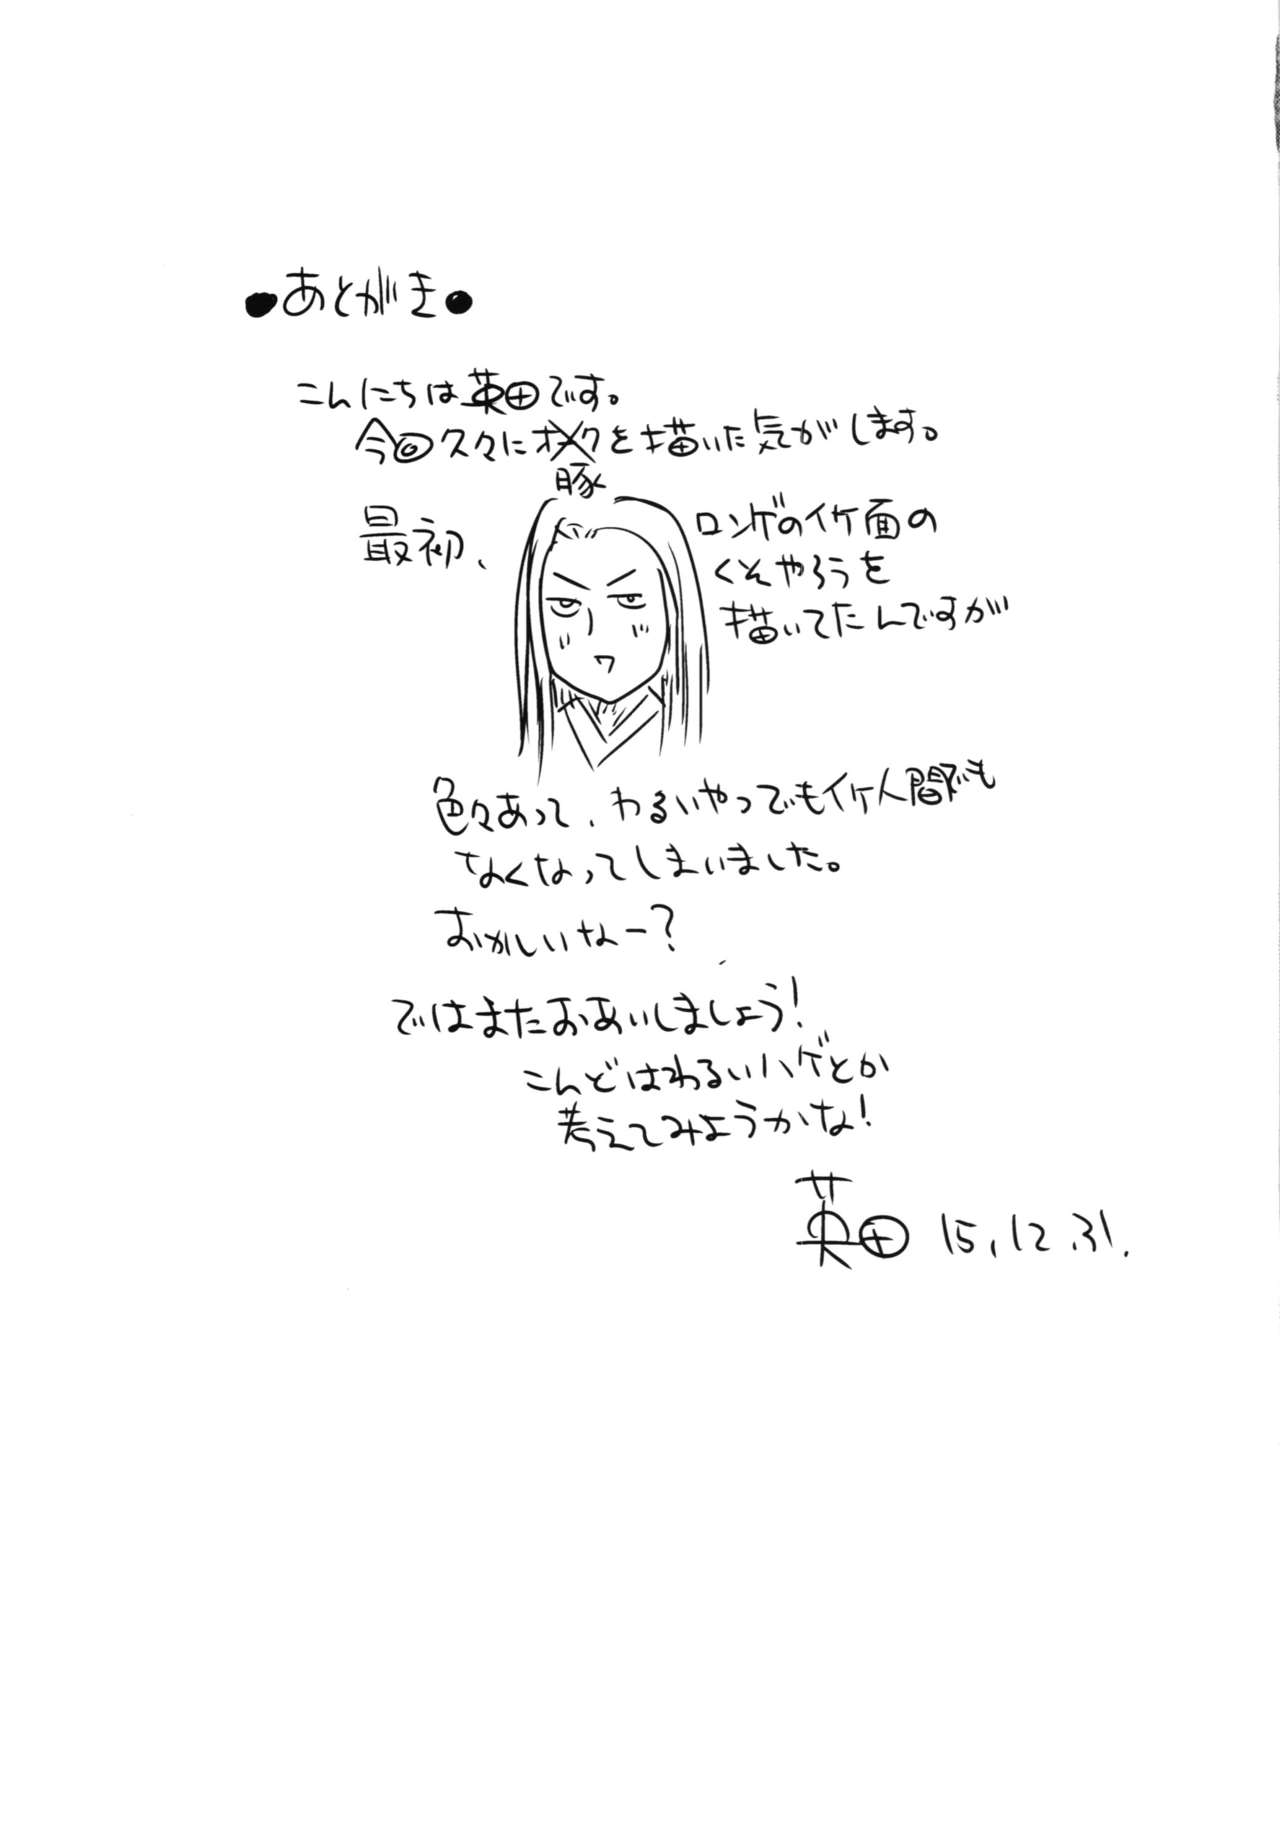 ●あとがき●
こんにちは英田です。
今回久々にオークを描いた気がします。
豚
最初、
ロンゲのイケ面の
くそやろうを
描いてたんですが
色々あって、わるいやつでもイケ人間でも
なくなってしまいました。
おかしいなー？
ではまたおあいしましょう！
こんどはわるいハゲとか
考えてみようかな！
英田 15.12.31.